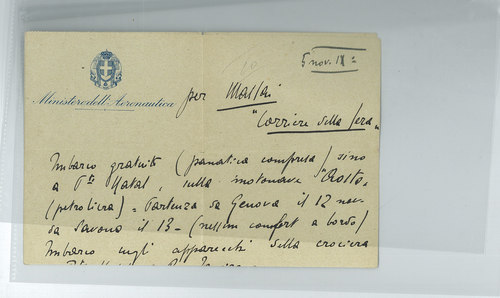 5 nov. IX =
Ministero dell'Aeronautica
per Massai
"Corriere della Sera"
Imbarco gratuito (panatica compresa) sino
a Pto Natal, sulla motonave
(petroliera) = Partenza da Genova il 12 nov.
da Savona il 13 - (nessun comfort a bordo)
Imbarco sugli apparecchi della crociera